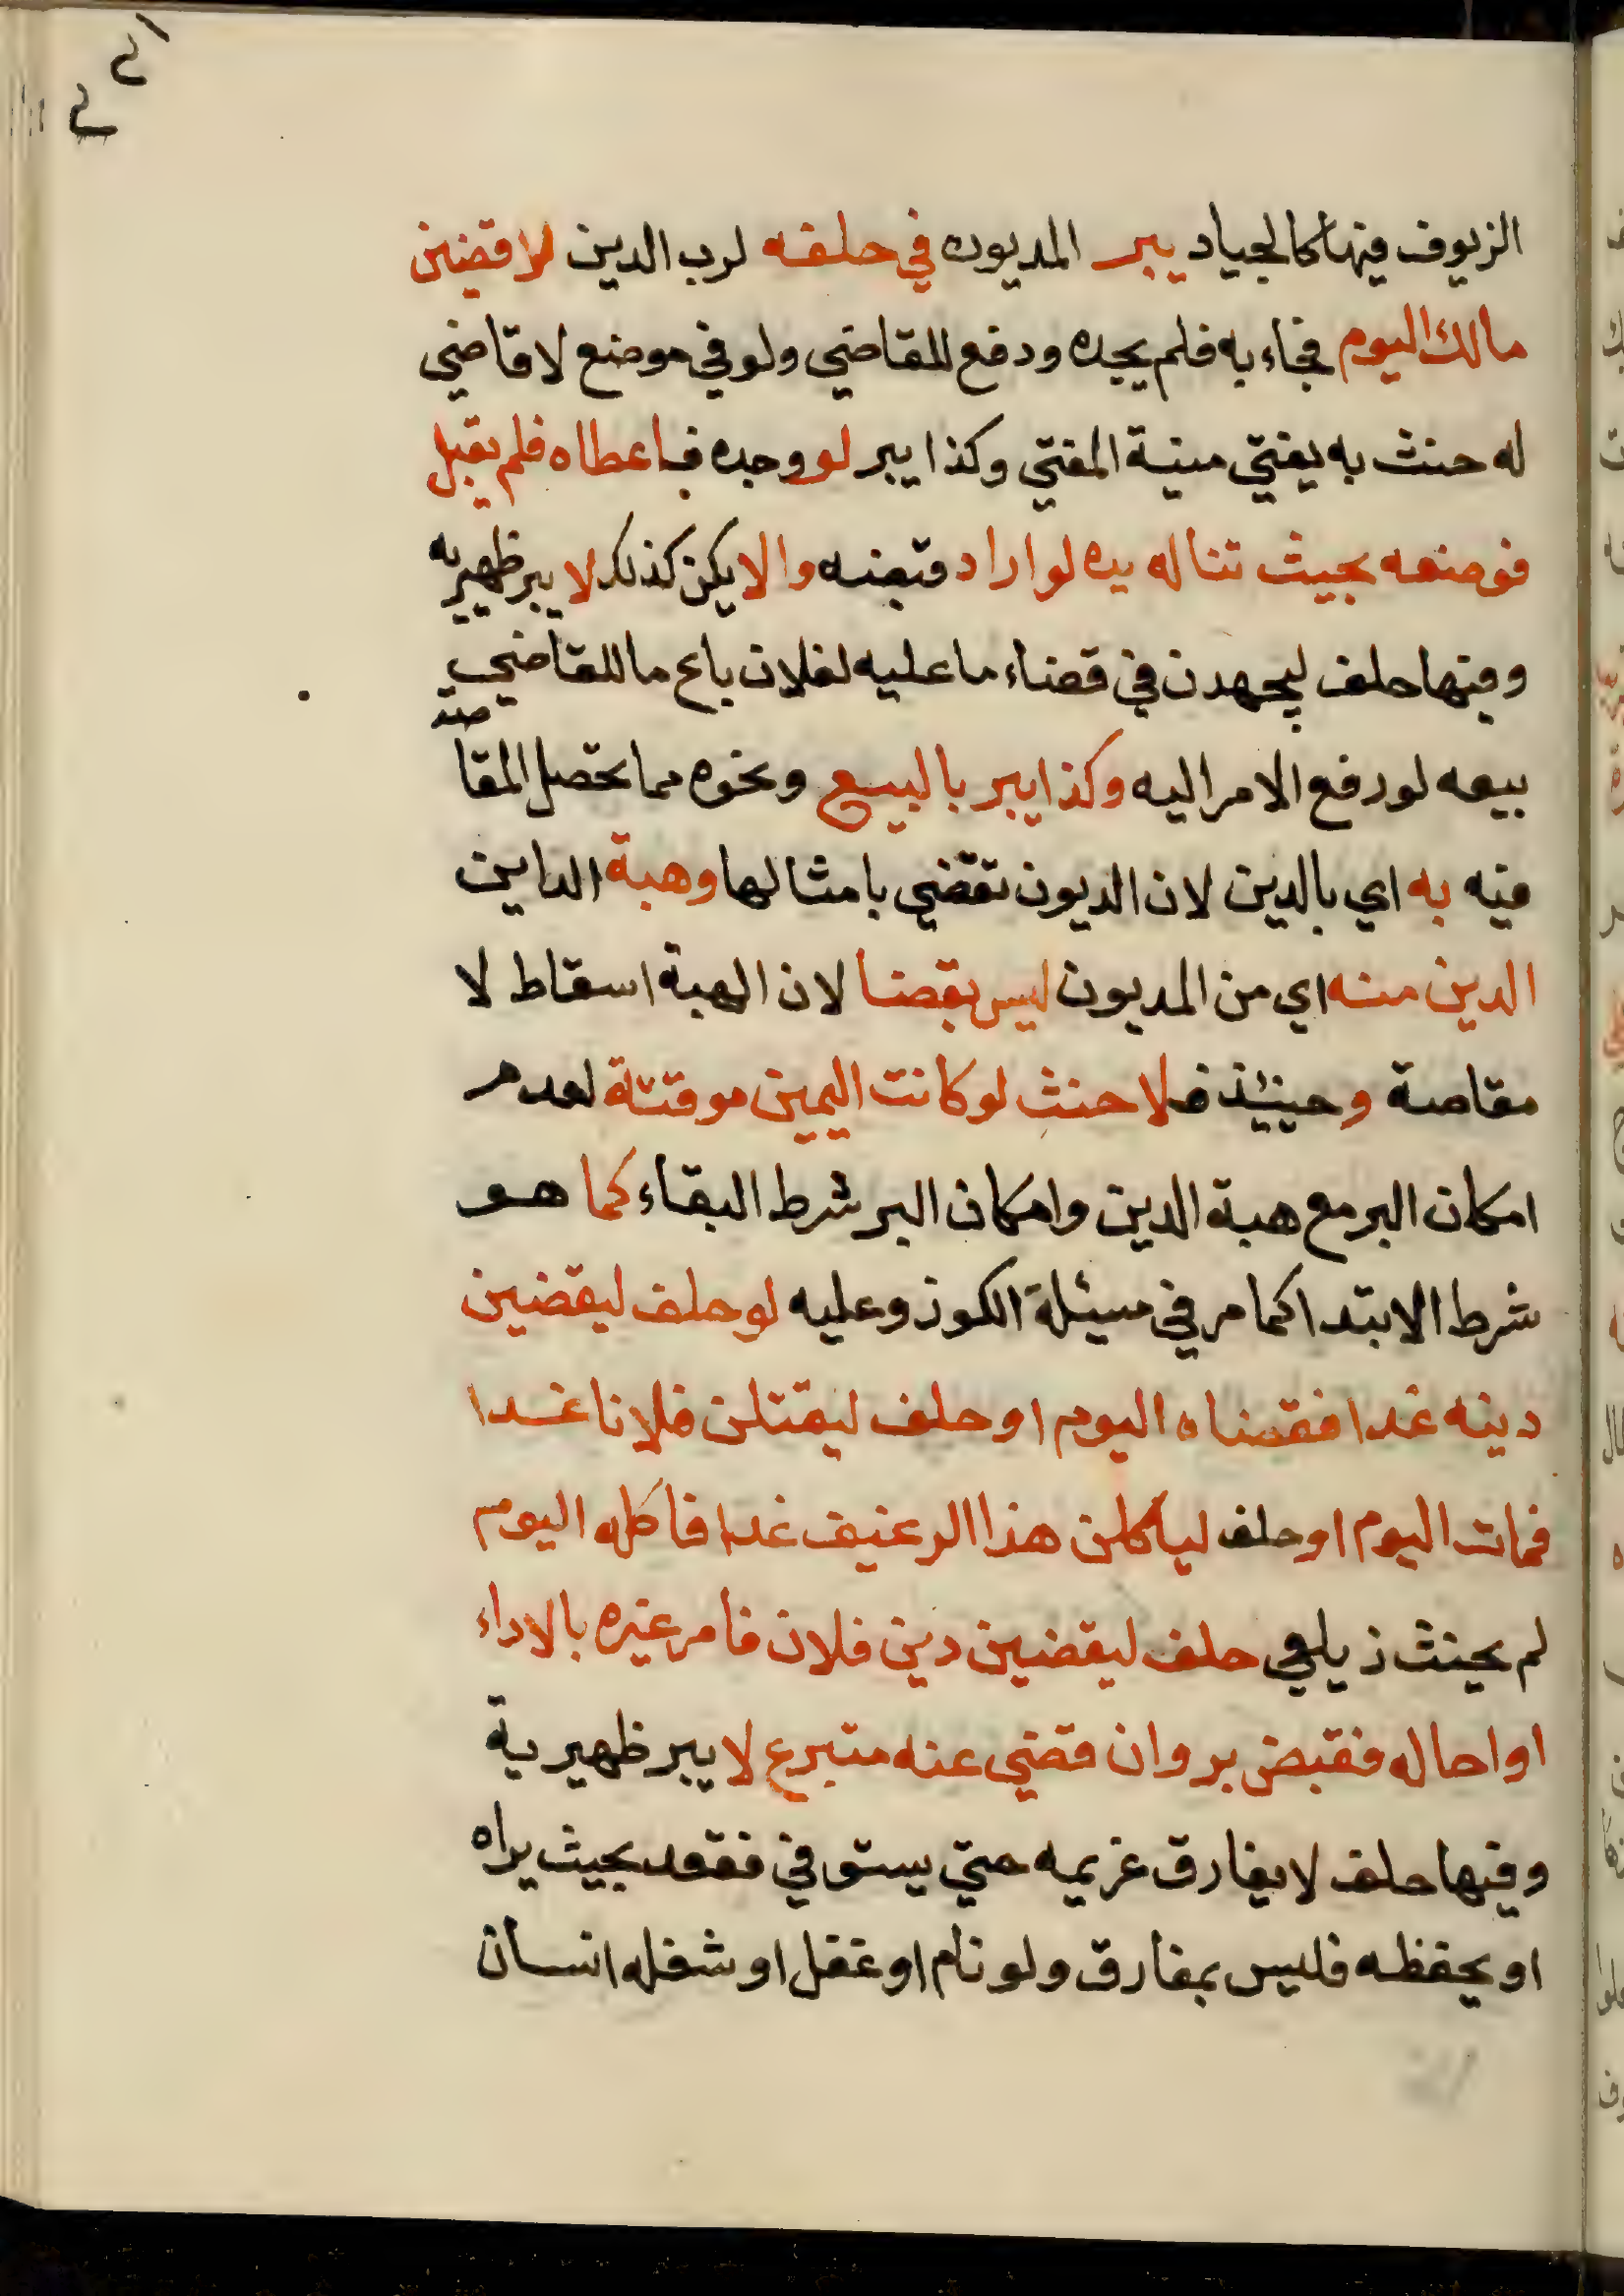 الزيوف فيها كالجياد يبر المديون في حلفه لرب الدين لاقضين
مالك اليوم فجاء به فلم يجده ودفع للقاضي ولو في موضع لا قاضي
له حنث به يفتي منية المفتي وكذا يبر لو وجده فاعطاه فلم يقبل
فوضعه بحيث تناله يده لو اراد قبضه والا يكن كذلك لا يبر ظهيريه
وفيها حلف ليجهدن في قضاء ما عليه لفلان باع ما للقاضي
بيعه لو رفع الامر اليه وكذا يبر بالبيع ونحوه مما تحصل المقاصة
فيه به اي بالدين لان الديون تقضي بامثالها وهبة الداين
الدين منه اي من المديون ليس بقضا لان الهبة اسقاط لا
مقاصة وحينئذ فلا حنث لو كانت اليمين موقتة لعدم
امكان البر مع هبة الدين وامكان البر شرط البقاء كما هو
شرط الابتدا كما مر في مسئلة الكوز وعليه لو حلف ليقضين
دينه غدا فقضاه اليوم او حلف ليقتلن فلانا غدا
فمات اليوم او حلف لياكلن هذا الرغيف غدا فاكله اليوم
لم يحنث زيلعي حلف ليقضين دين فلان فامر غيره بالاداء
او احاله فقبض بر وان قضي عنه متبرع لا يبر ظهيرية
وفيها حلف لا يفارق غريمه حتي يستوفي فقعد بحيث يراه
او يحفظه فليس بمفارق ولو نام او غفل او شغله انسان